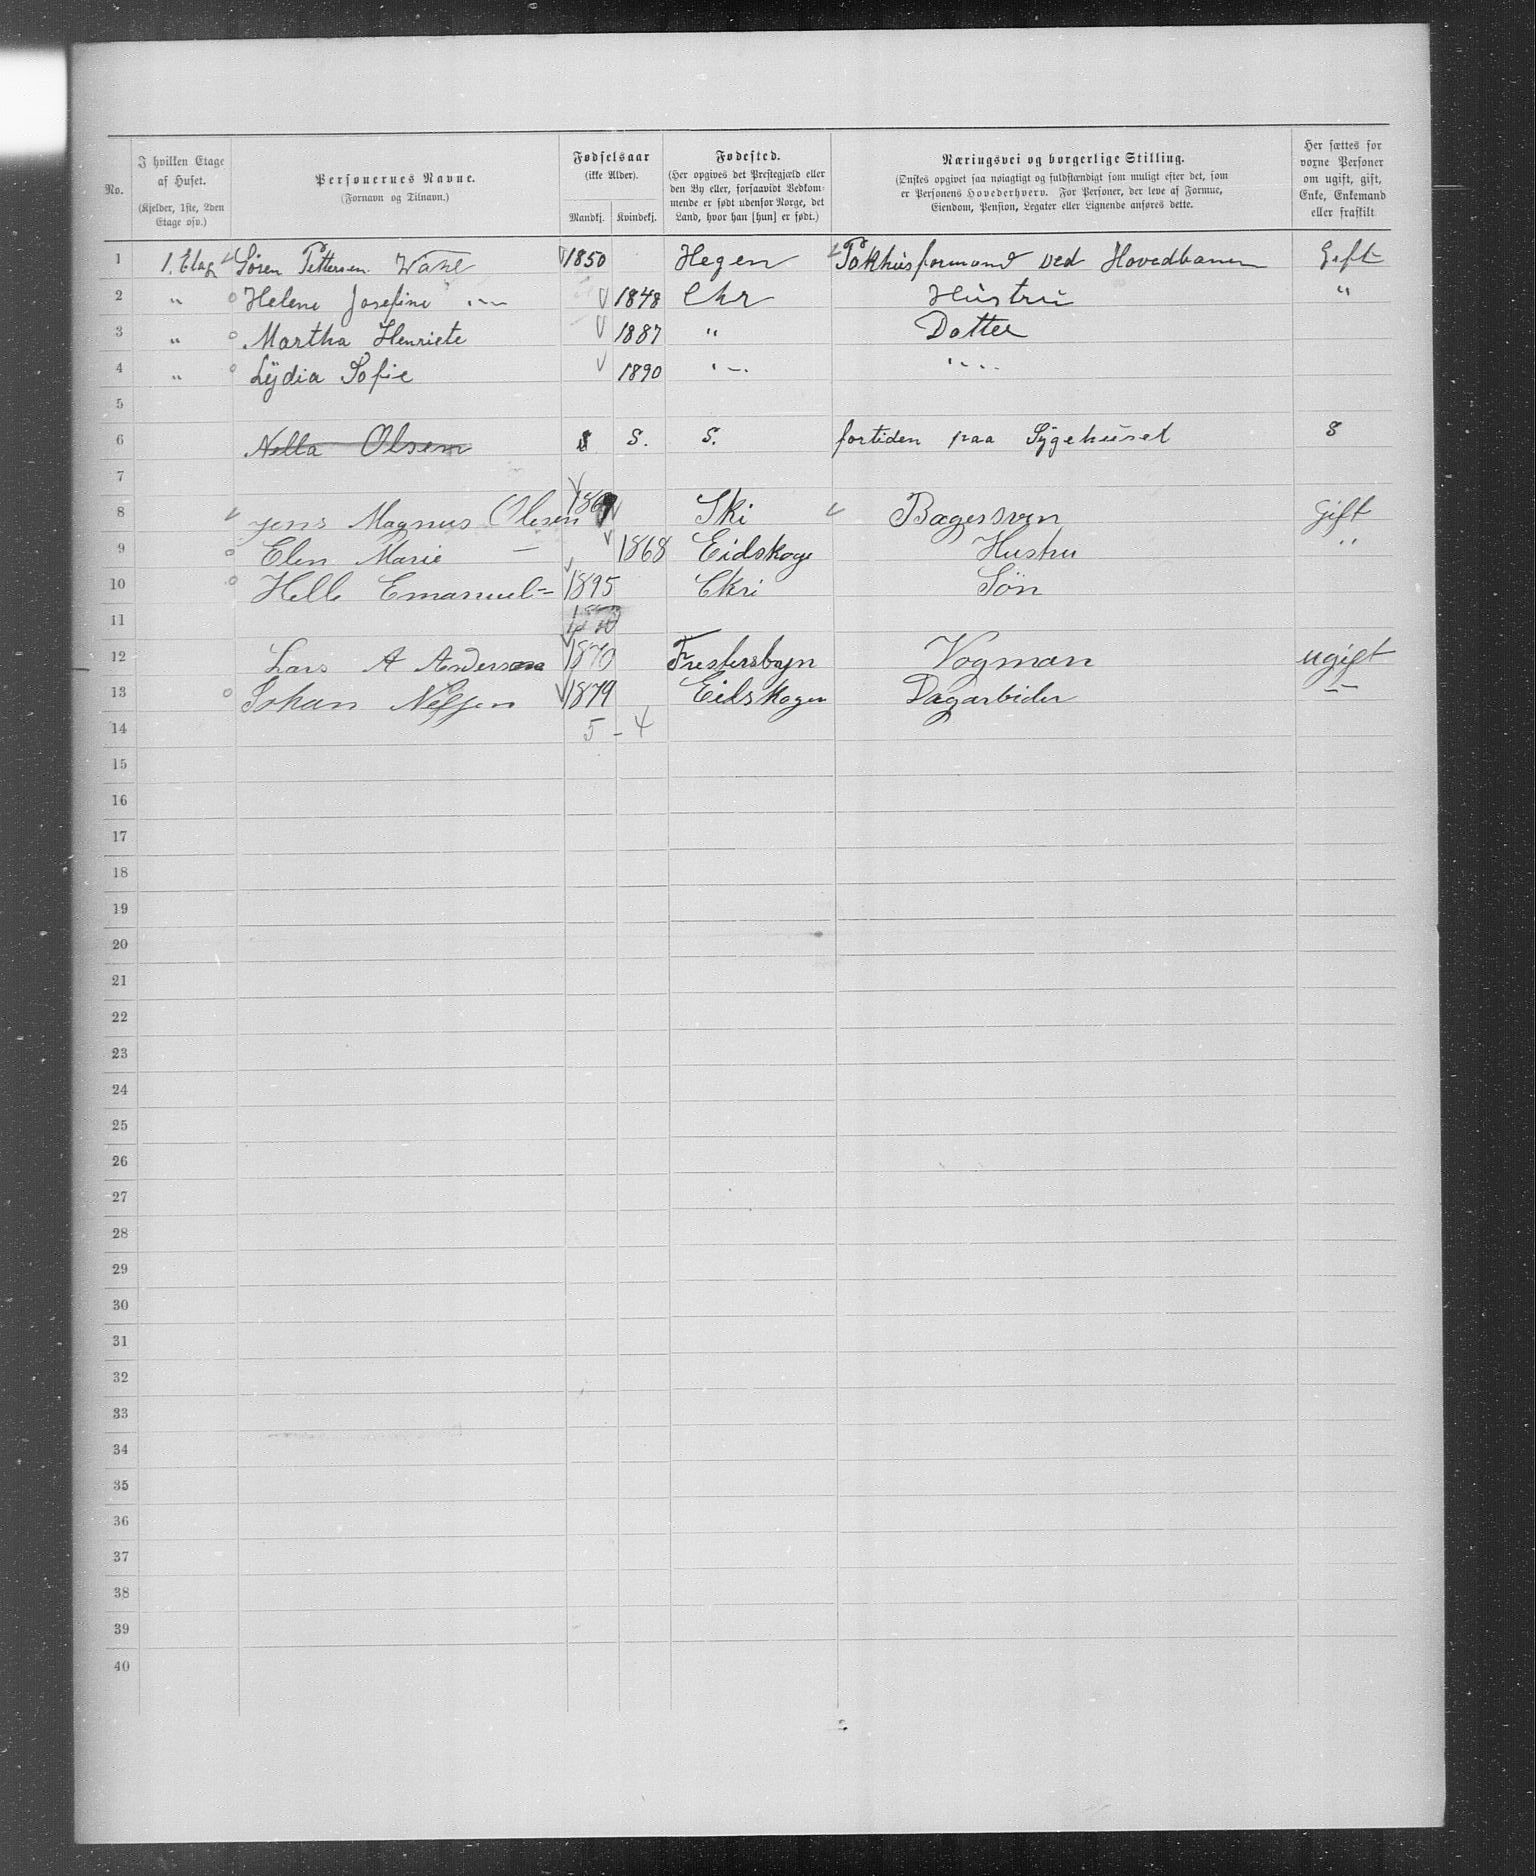 No.
I hvilken Etage af Huset.
(Kjelder, 1ste, 2den Etage osv.)
Personernes Navne.
(Fornavn og Tilnavn.)
Fødselsaar
(ikke Alder).
Mandkj. Kvindekj.
Fødested.
(Her opgives det Prestegjæld eller
den By eller, forsaavidt Vedkom-
mende er født udenfor Norge, det
Land, hvor han [hun] er født.)
Næringsvei og borgerlige Stilling.
(Ønskes opgivet saa nøiagtigt og fuldstændigt som muligt efter det, som
er Personens Hovederhverv. For Personer, der leve af Formue,
Eiendom, Pension, Legater eller Lignende anføres dette.
Her sættes for
voxne Personer
om ugift, gift,
Enke, Enkemand
eller fraskilt
1 1. Etag Søren Pettersen Wahl 1850 Hegen Pakhusformand ved Hovedbanen Gift
2 " Helene Josefine -"- 1848 Chr Hustru "
3 " Martha Henriete 1887 " Datter
4 " Lydia Sofie 1890 -"- -"-
5
6 Nella Olsen S. S. fortiden paa Sygehuset
7
8 Jens Magnus Olesen 1867 Ski Bagersven gift
9 Elen Marie — 1868 Eidskoge Hustru "
10 Helle Emanuel = 1895 Ckri Søn
11
12 Lars A Anderson 1870 Vogman ugift
13 Johan Nelsen 1879 Eidskogen Dagarbider —"—
14 5 - 4
15
16
17
18
19
20
21
22
23
24
25
26
27
28
29
30
31
32
33
34
35
36
37
38
39
40